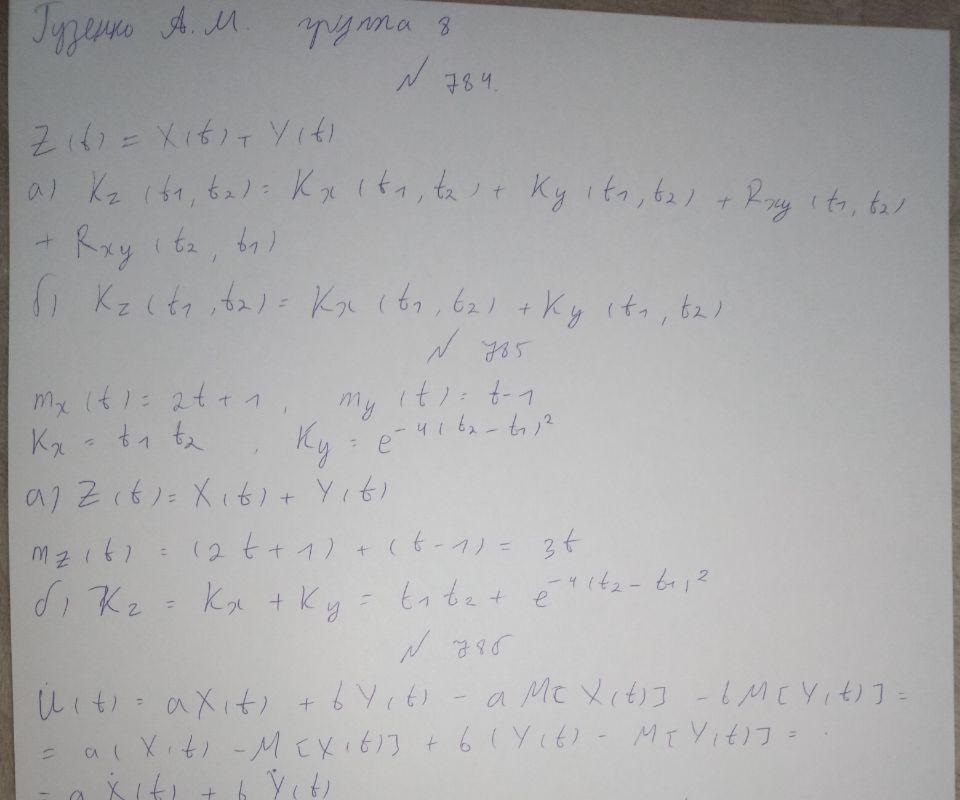 Гузенко А.М. группа 8
N 784.
Z(t) = X(t) + Y(t)
а) Kz (t1, t2) = Kx (t1, t2) + Ky (t1, t2) + Rxy (t1, t2)
+ Rxy (t2, t1)
б) Kz (t1, t2) = Kx (t1, t2) + Ky (t1, t2)
N 785
mx (t) = 2t + 1, my (t) = t-1
Kx = t1 t2, Ky = e^-4(t2 - t1)^2
а) Z(t) = X(t) + Y(t)
mz(t) = (2t + 1) + (t - 1) = 3t
б) Kz = Kx + Ky = t1 t2 + e^-4(t2 - t1)^2
N 786
U̇(t) = aX(t) + bY(t) - aM[X(t)] - bM[Y(t)] =
= a(X(t) - M[X(t)] + b(Y(t) - M[Y(t)] =
= aẊ(t) + bẎ(t)